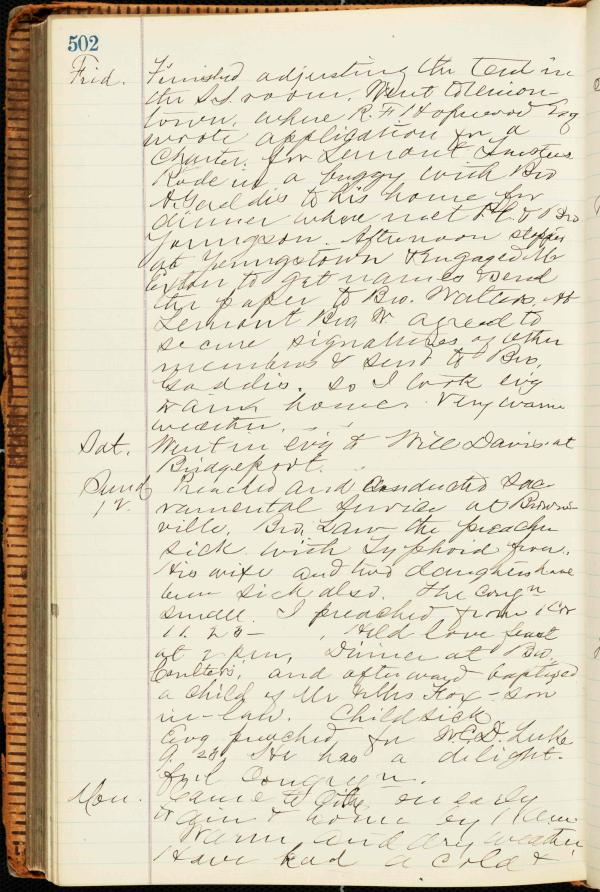 502
Frid. Finished adjusting the tent in
the S.S. room. Went to Union-
town, where R. F. Hopwood Esq
wrote application for a
Charter, for Lemont Trustees
Rode in a buggy with Bro
Gaddis to his home for
dinner where met P.E. & Bro
Youngson. Afternoon stopped
at Youngstown & Engaged Mc
to get names & send
the paper to Bro. Walters, At
Lemont Bro. W. agreed to
secure signatures of other
members & send to Bro.
Gaddis. So I took evg
train home. Very warm
weather.
Sat. Went in evg to Will Davis at
Bridgeport.
Sund Preached and conducted Sac-
12. ramental service at Browns-
ville. Bro. Law the preacher
sick with Typhoid fever.
His wife and two daughters have
been sick also. The congn
small. I preached from 1 Cor
11. 23- , Held love feast
at 2 p.m. Dinner at Bro.
Coulters, and afterward baptized
a child of Mr & Mrs Fox - son
in-law. Child sick
Evg preached for W.C.D. Luke
9. 23. He has a delight-
ful congregn.
Mon. Came to City on early
train & home by 11 a.m.
Warm and dry weather
Have had a cold &